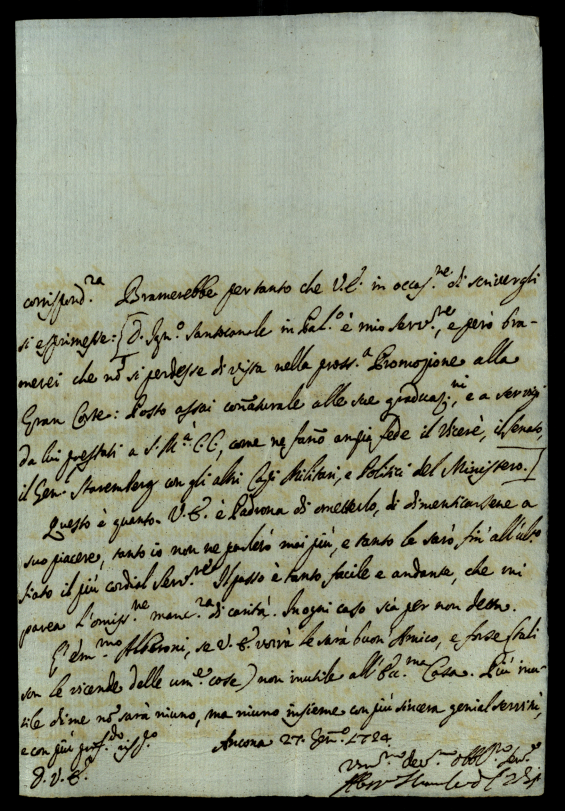 corrispond.za Bramerebbe per tanto che V.E. in occas.ne di scrivergli
si esprimesse: [D. Ign.o Santocanale in Pal.o è mio Serv.re, e però bra-
merei che nõ si perdesse di vista nella pross.a Promozione alla
Gran Corte: Posto assai connaturale alle sue graduaz.ni, e a servigi
da lui prestati a S.M.à C.C., come ne fanno ampia fede il Vicerè, il Senato,
il Gen. Staremberg con gli altri Capi Militari, e Politici del Ministero.]
Questo è quanto. V.E. è Padrona di ometterlo, di dimenticarsene a
suo piacere, tanto io non ne parlerò mai più, e tanto le sarò fin' all'ulto
fiato il più cordial Serv.re Il passo è tanto facile e andante, che mi
parea l'omiss.ne manc.za di carità. In ogni caso sia per non detto.
L'em.mo Alberoni, se V.E. vorrà le sarà buon Amico, e forse (tali
son le vicende delle um.e cose) non inutile all'Ecc.ma Casa. Più inu-
tile di me nõ sarà niuno, ma niuno insieme con più sincera genial servitù,
e con più prof.do oss.o
Ancona 27. Gen.o 1724
D.V.E.
Um.mo dev.mo obbl.mo Ser.e